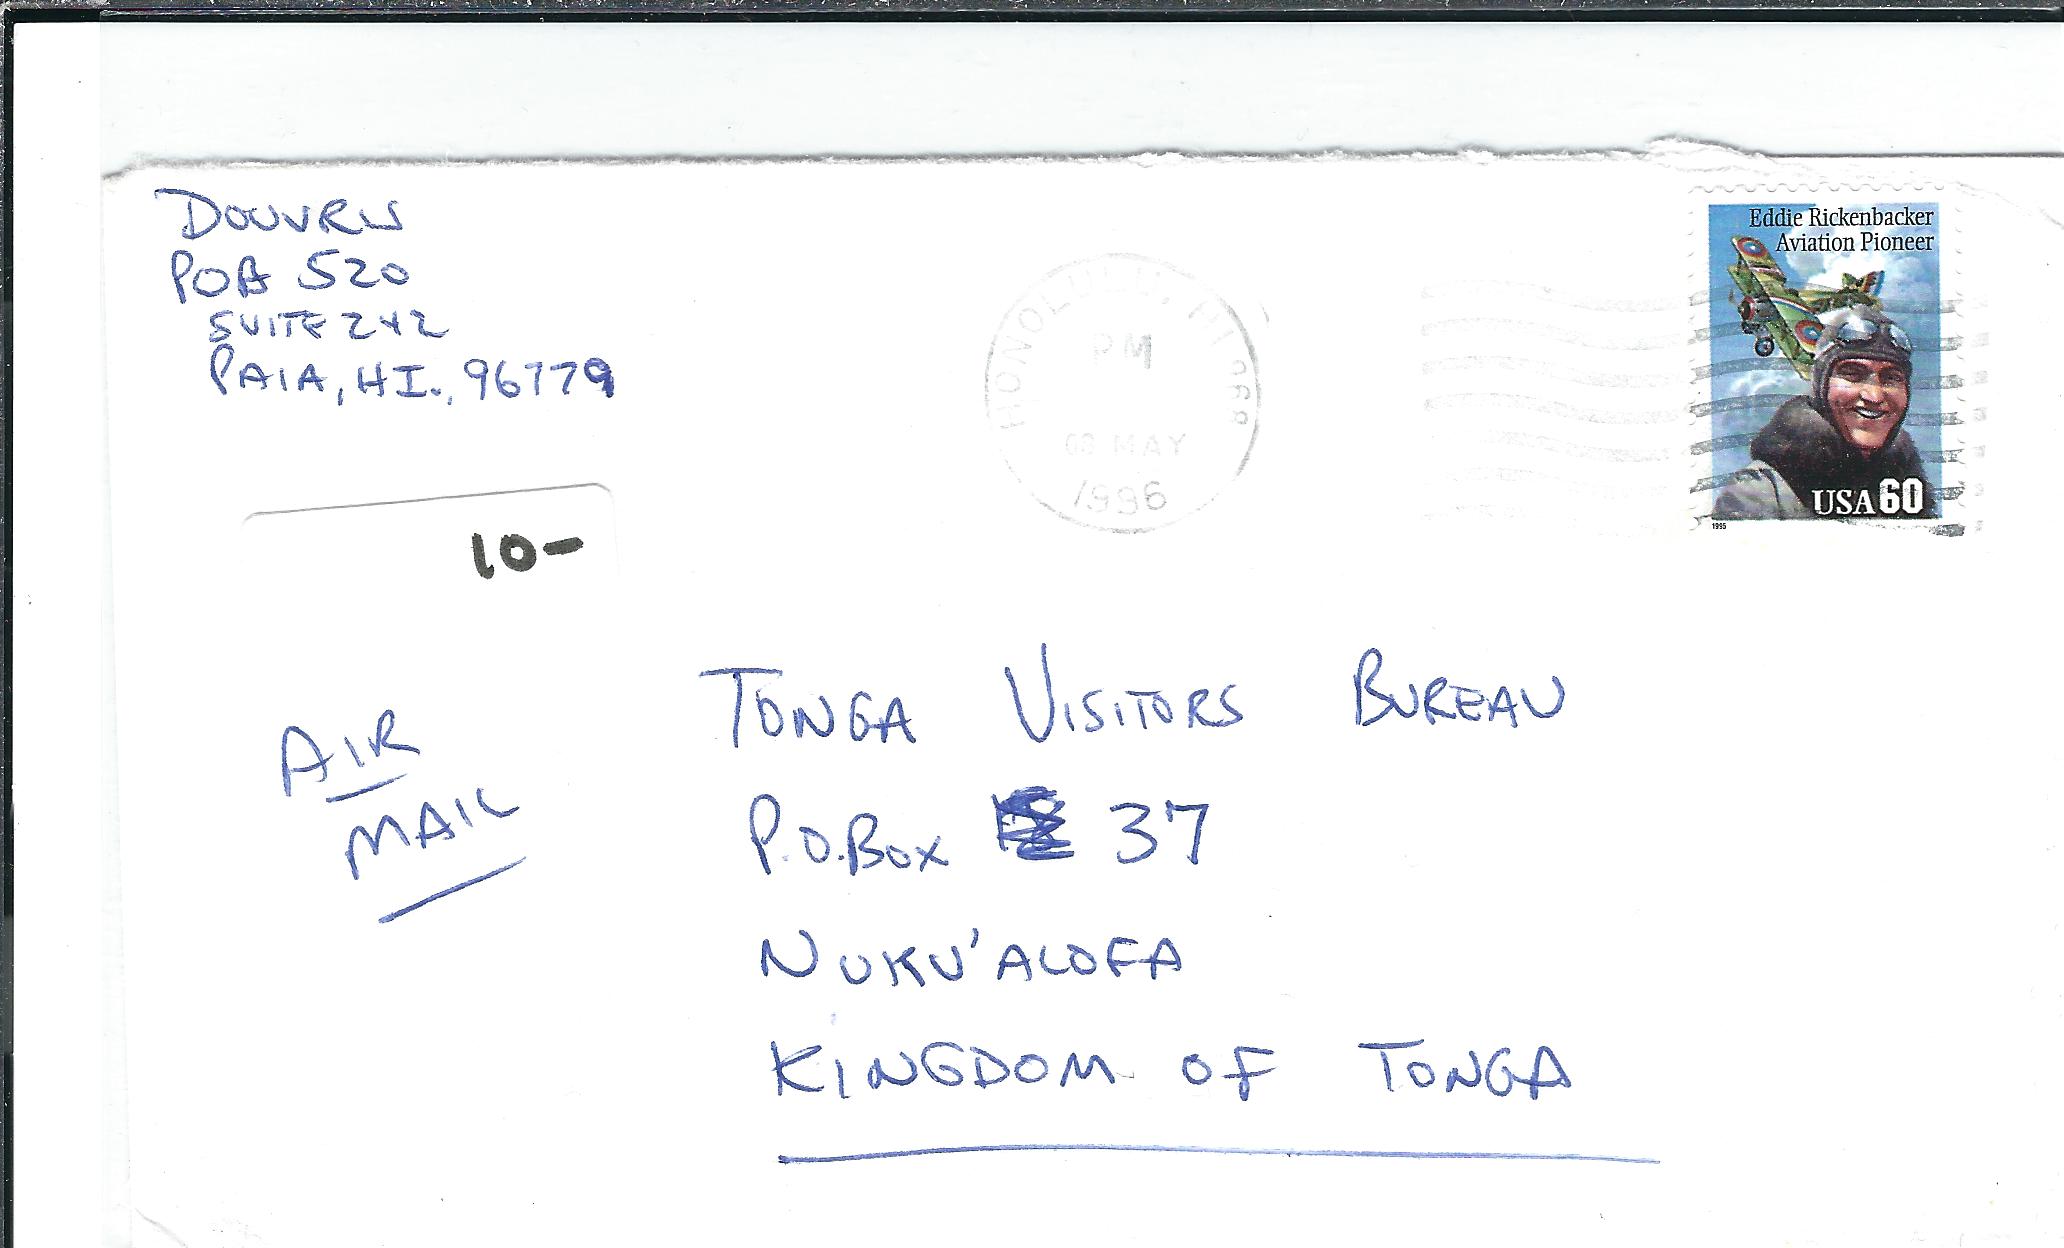 DOUVRIS
POB 520
SUITE 242
PAIA, HI., 96779
HONOLULU, HI 968
PM
MAY
1996
Eddie Rickenbacker
Aviation Pioneer
USA 60
1995
10-
AIR
MAIL
TONGA VISITORS BUREAU
P.O.BOX 37
NUKU'ALOFA
KINGDOM OF TONGA